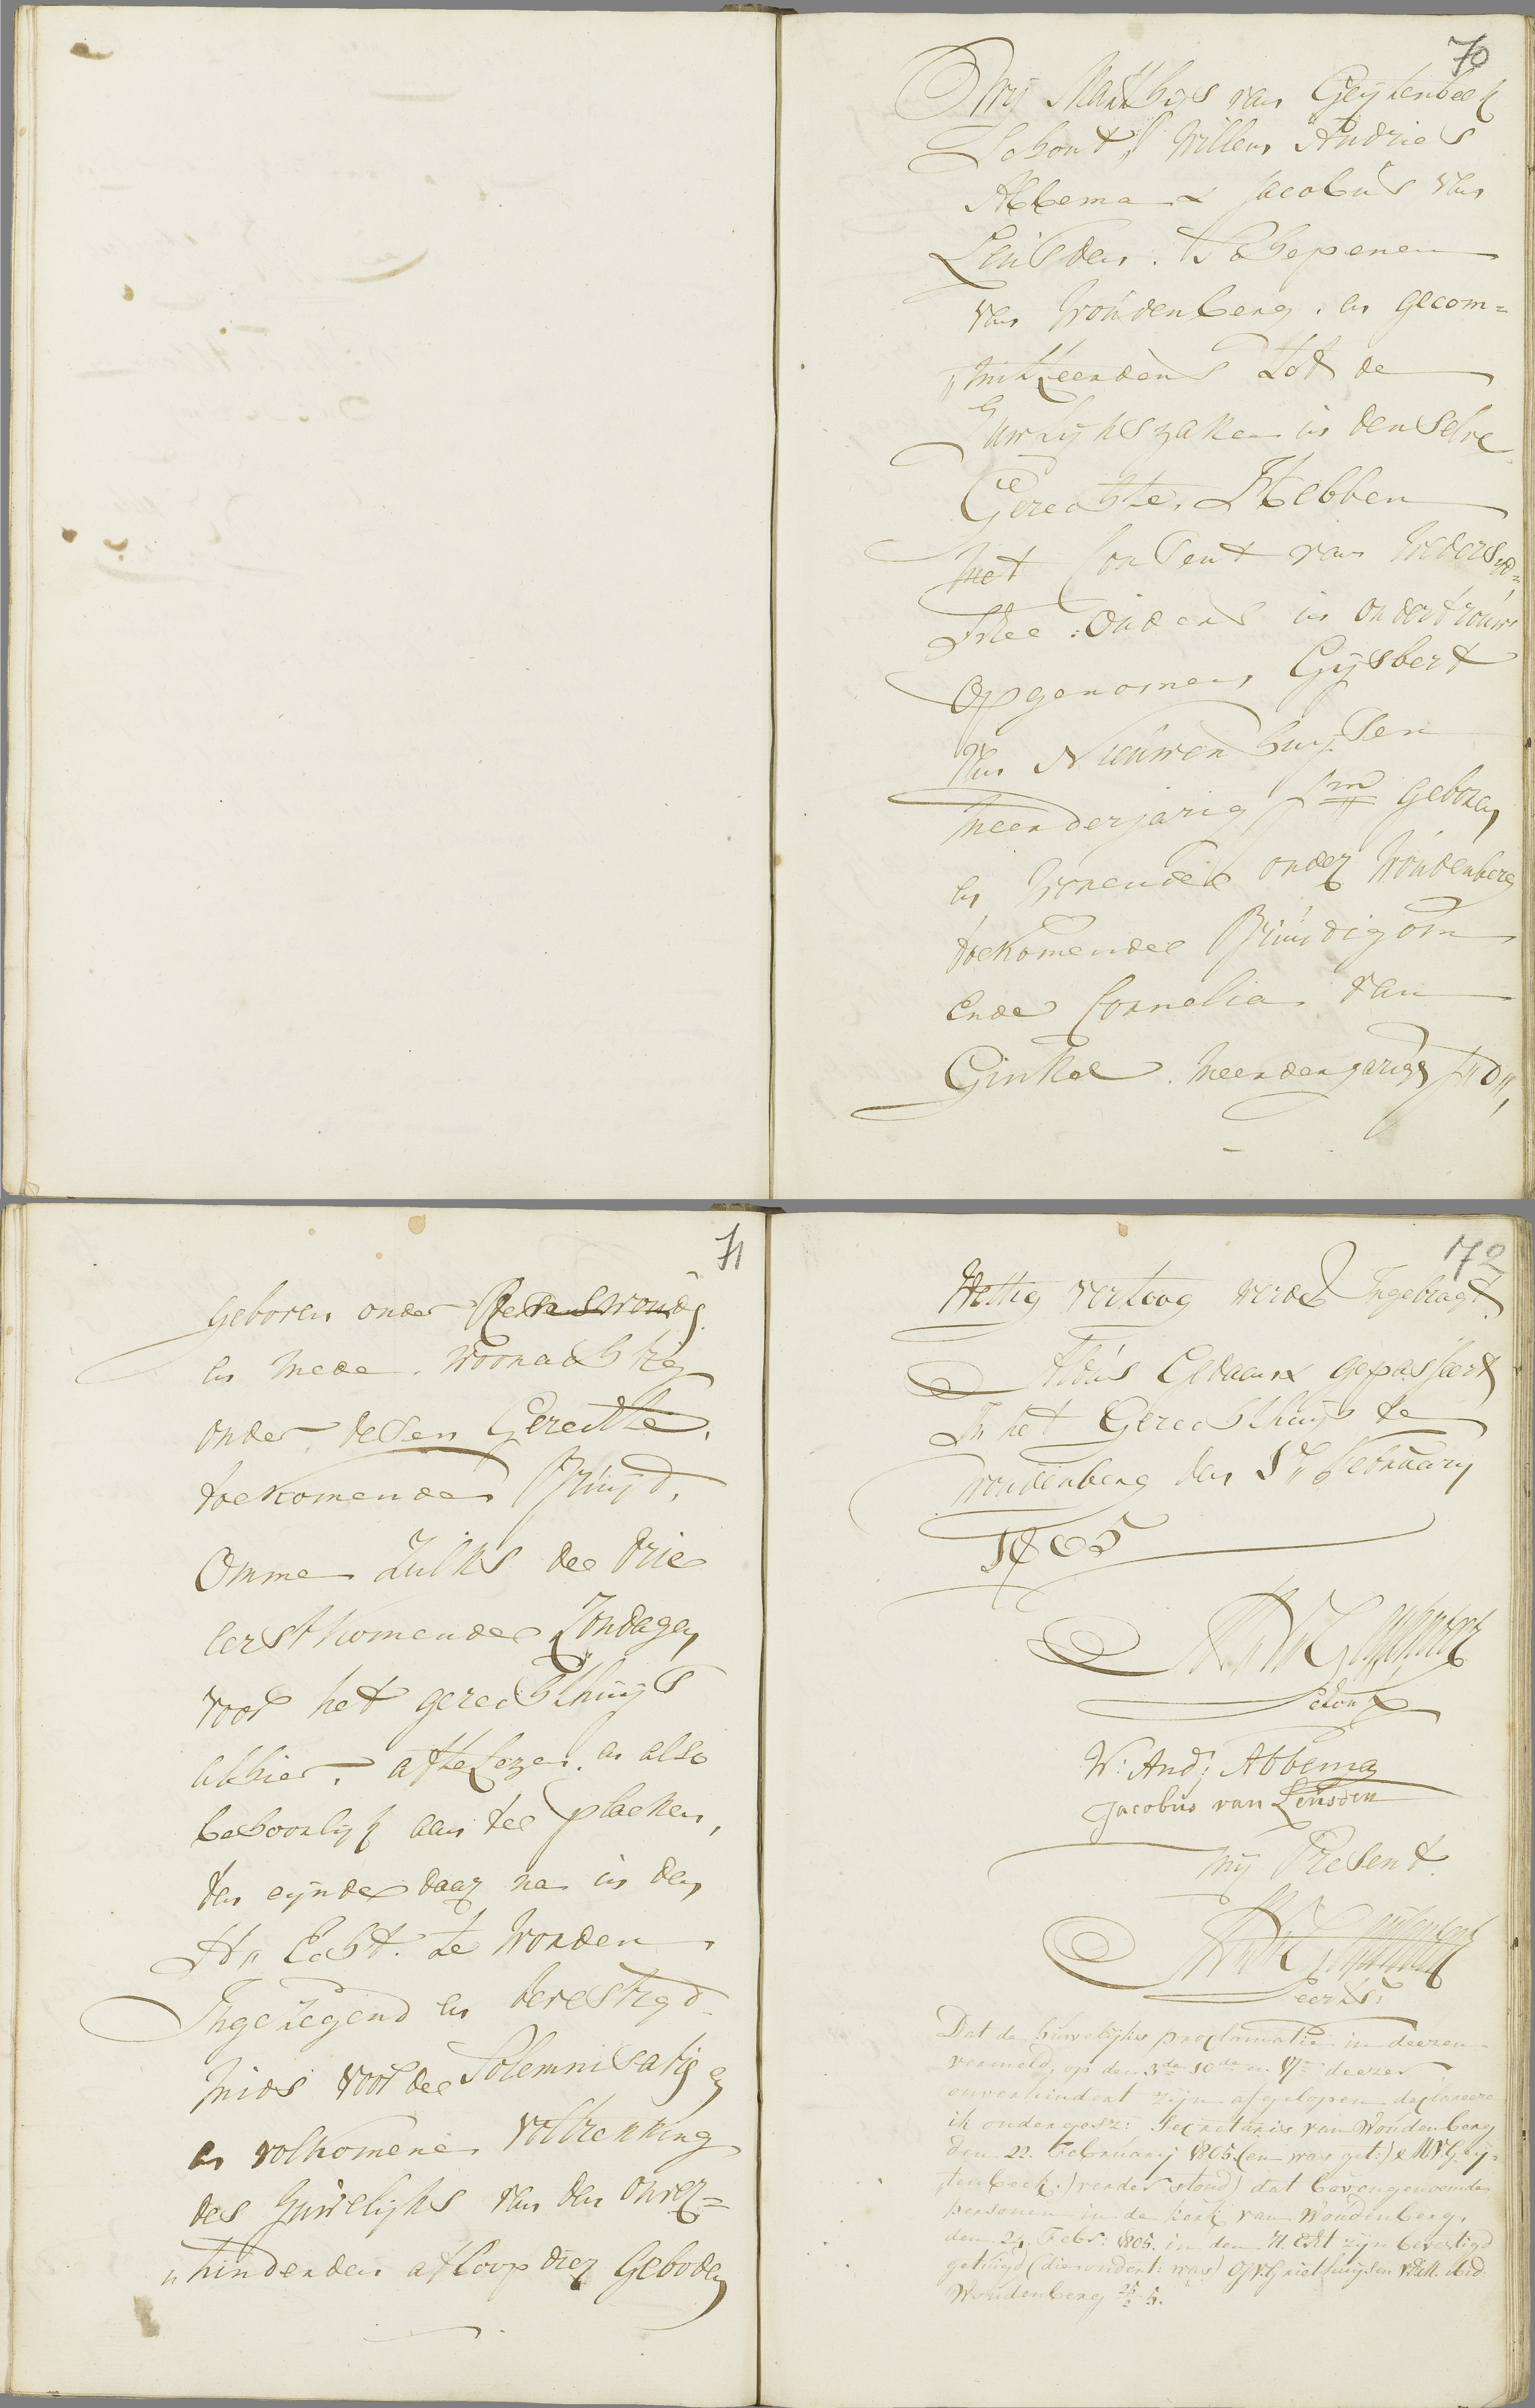 70
Wij Matthijs van Geijtenbeek
Schout, Willem Andries
Abbema & Jacobus van
Leusden. Schepenen
van Woudenberg. en gecom=
„mitteerdens tot de
Huwlijkszaken in denselve
Gerechte, Hebben
met Consent van wederzyd=
sche Ouders in ondertrouw
opgenomen Gijsbert
van Nieuwenhuijsen
meerderjarig jm geboren
en wonende onder Woudenberg
toekomende Bruidigom
ende Cornelia van
Ginkel. meerderjarige j„d„,
71
geboren onder Renswoude
en mede woonachtig
onder desen Gerechte.
toekomende Bruijd,
omme zulks de drie
eerstkomende Zondagen
voor het gerechthuijs
alhier. afteleezen. en also
behoorlijk aan te placken,
ten eijnde daar na in den
H„ Echt. te worden
Ingezegend en bevestigd
mids voor de Solemnisatie
en volkomene voltrekking
des Huwelijks van den onver=
„hinderden afloop dier Geboden
72
Wettig vertoog werde Ingebragt.
Aldus Gedaan & gepasseert
In het Gerechthuijs te
Woudenberg den 1„ February
1805
MVGeijtenbeek
Schout
W: And: Abbema
Jacobus van Leusden
mij Present
MVGeijtenbeek
Secrts:
Dat de huwelijks proclamatie in deezen
vermeld, op den 3de 10de en 17e deezer
onverhindert zijn afgelopen declareere
ik ondergesz: Secretaris van Woudenberg
den 22. February 1805. (en was get:) MVGeij=
tenbeek.) verder stond) dat bovengenoemde
personen in de kerk van Woudenberg,
den 24. Febr: 1805. in den H. Echt zijn bevestigd
getuigd (die ondert: was) G. V. Griethuijsen
Woudenberg